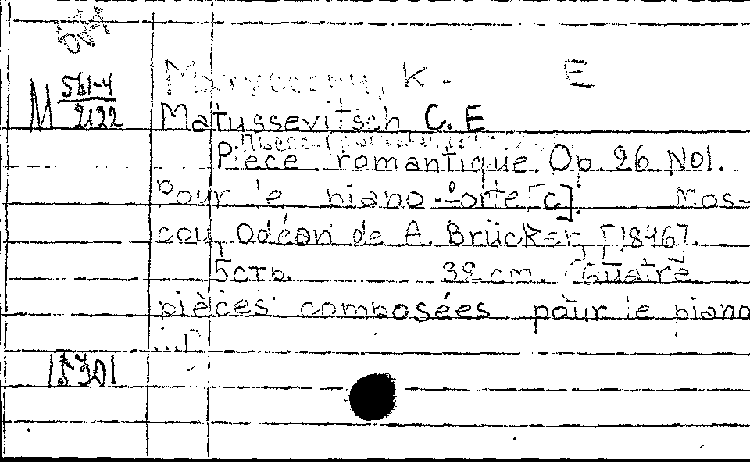 М 561-4
2122
К. Е
Matussevitsch C. E
Pièce romantique. Op. 26 No1.
pour le piano-forte [c]. Mos-
cou, Odéon de A. Brücker, [1846].
5 стр. 32 cm. (Quatre
pièces composées pour le piano
...)
15301